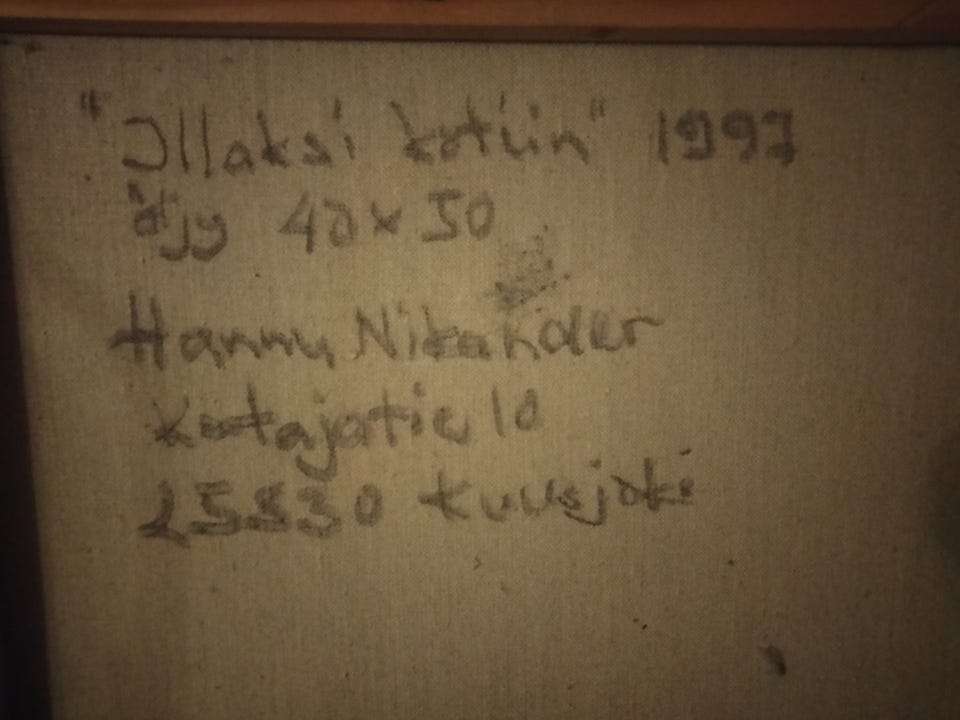 "Illaksi kotiin" 1997
öljy 40 x 50
Hannu Nikander
Katajatie 10
25330 Kuusjoki